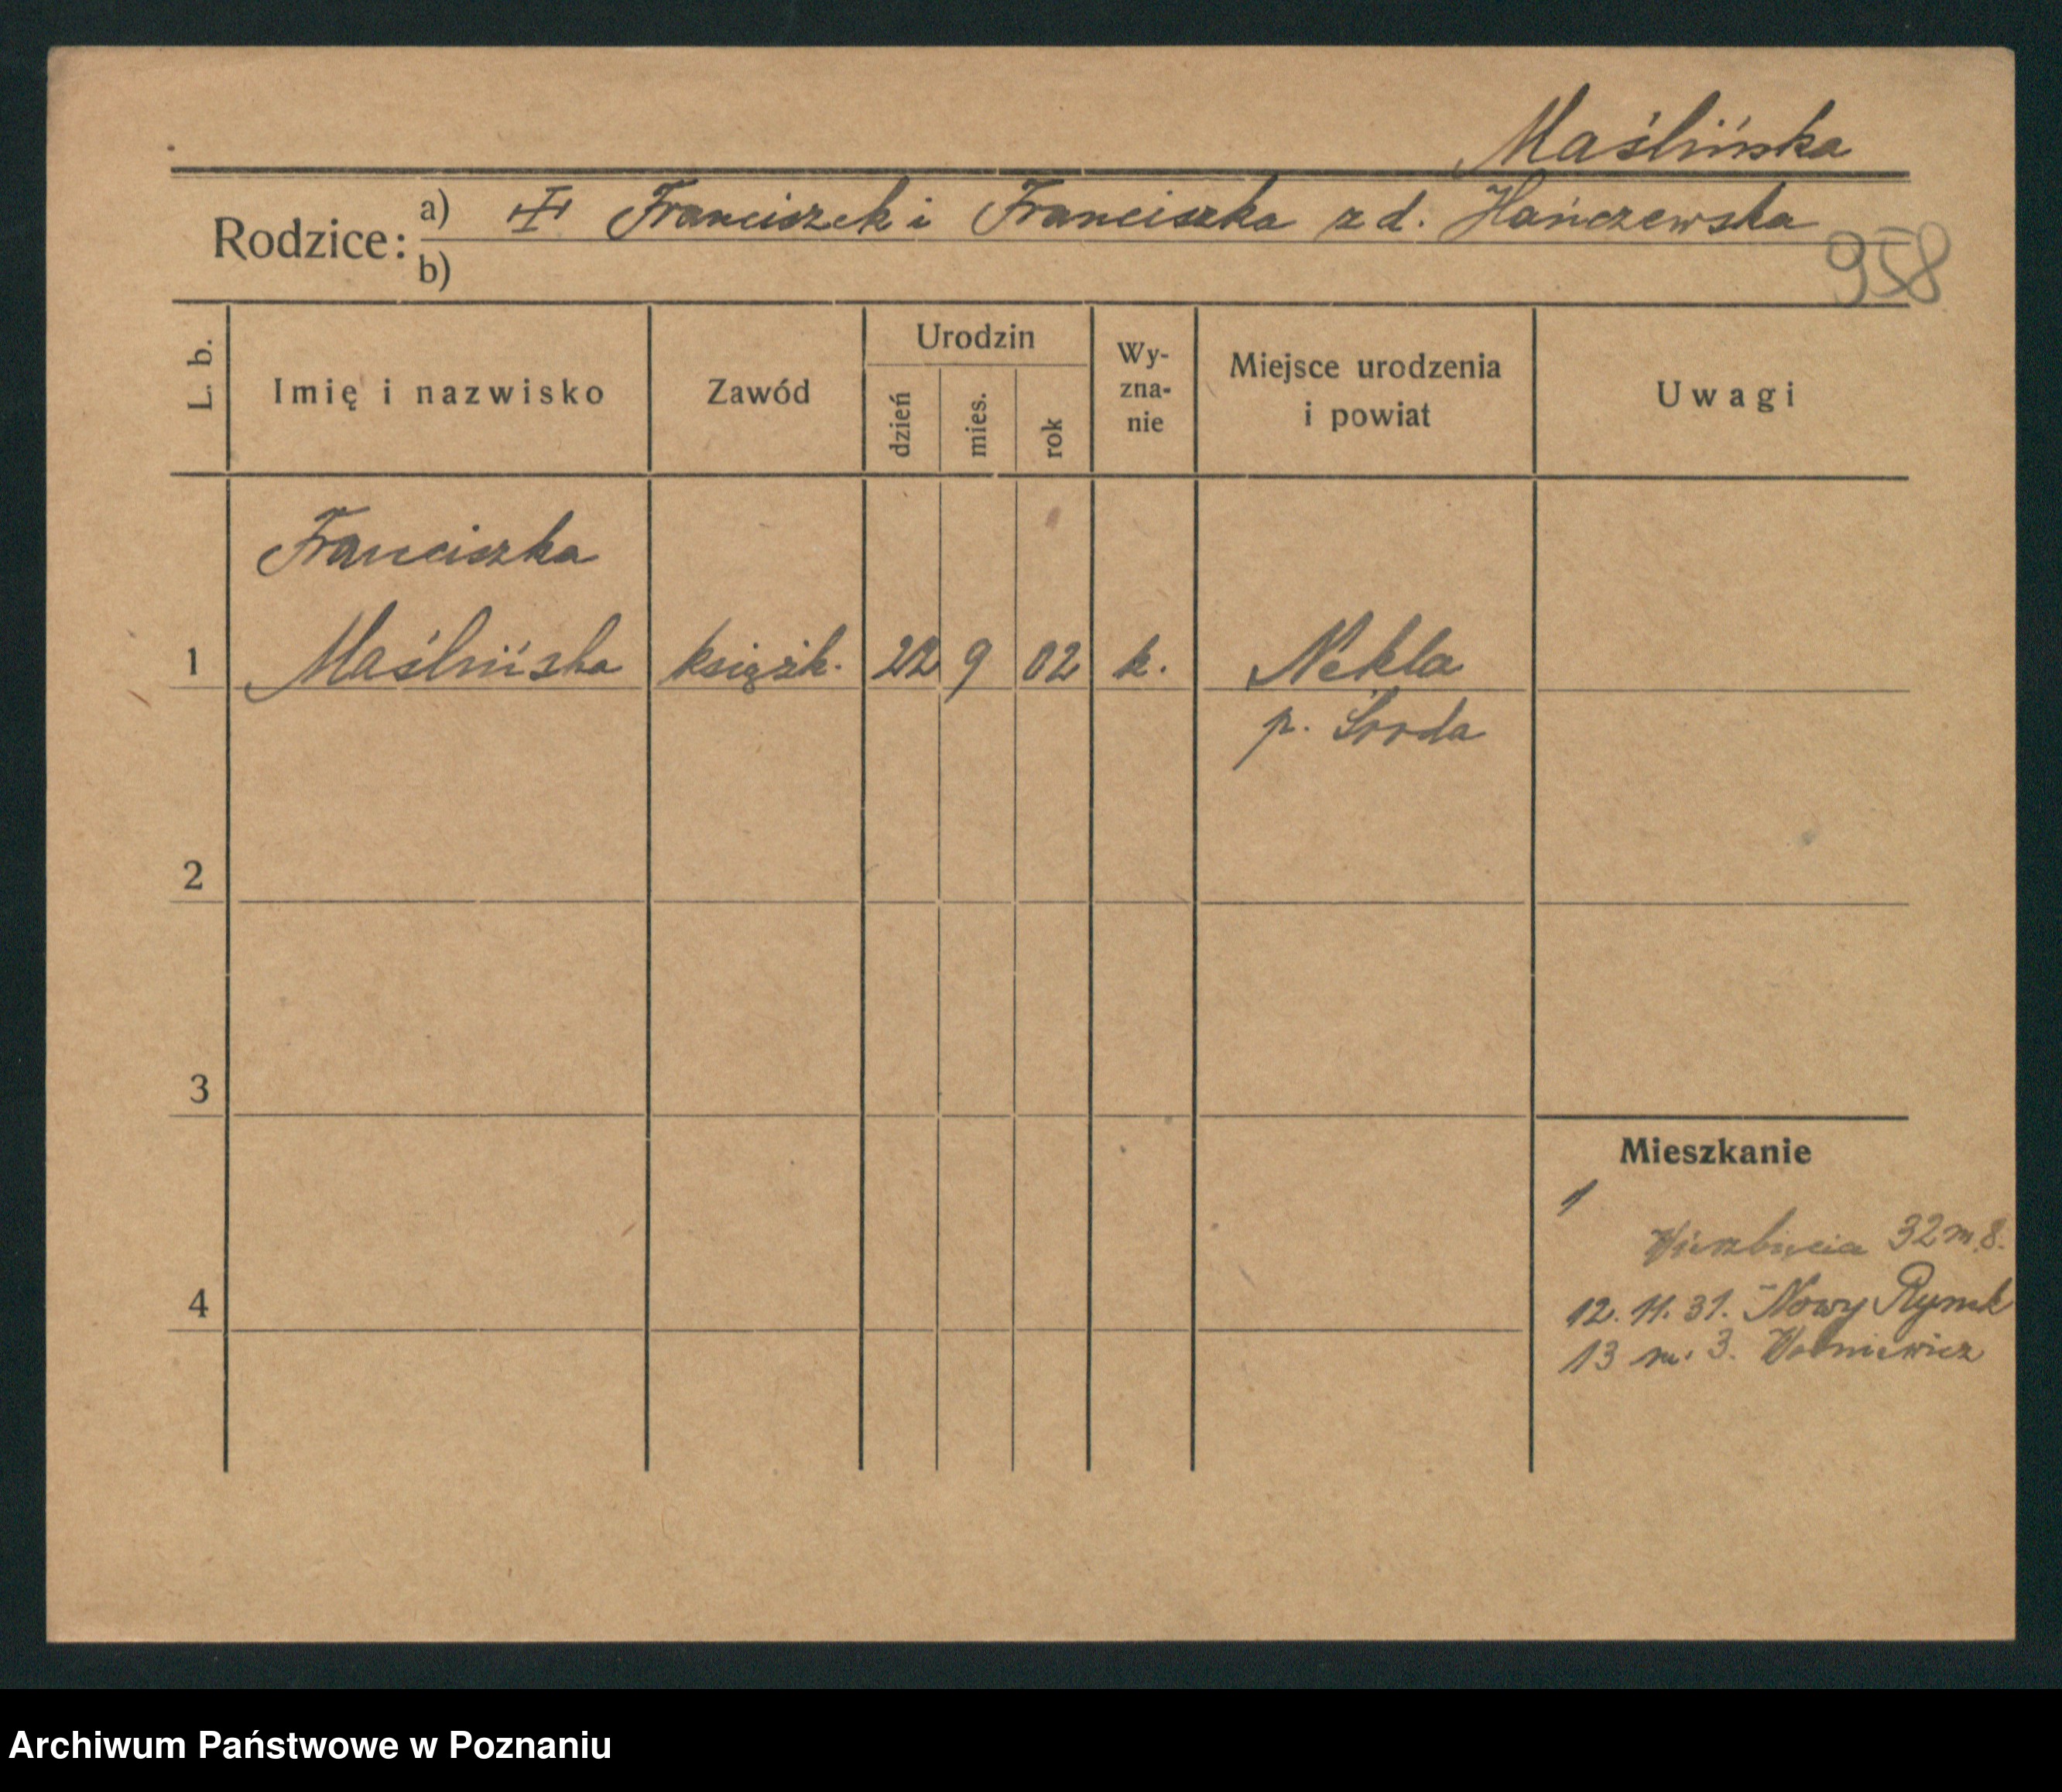 Maślińska
Rodzice: a) Franciszek i Franciszka z d. Hańczewska
b)
958
L. b. Imię i nazwisko Zawód Urodzin dzień mies. rok Wy-zna-nie Miejsce urodzenia i powiat Uwagi
Franciszka
1 Maślińska książk. 22 9 02 k. Nekla
p. Środa
2
3
Mieszkanie
1
Wierzbięcia 32 m. 8.
4
12. 11. 31. Nowy Rynek
13 m. 3.
Archiwum Państwowe w Poznaniu